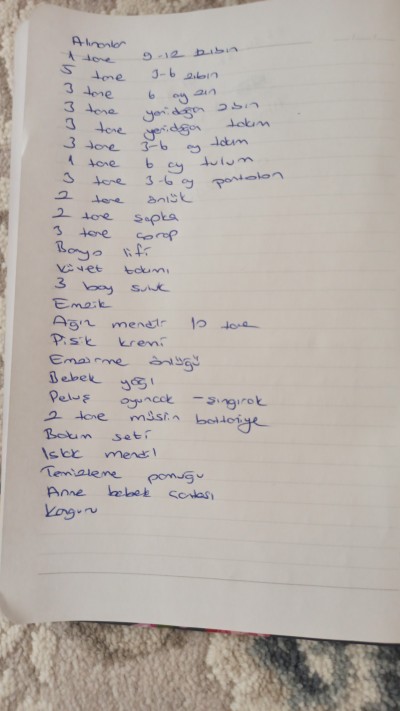 Alınanlar
1 tane 9-12 zıbın
5 tane 3-6 zıbın
3 tane 6 ay zıbın
3 tane yenidoğan zıbın
3 tane yenidoğan takım
3 tane 3-6 ay takım
1 tane 6 ay tulum
3 tane 3-6 ay pantolon
2 tane önlük
2 tane şapka
3 tane çorap
Banyo lifi
Küvet takımı
3 boy suluk
Emzik
Ağız mendil 10 tane
Pişik kremi
Emzirme önlüğü
Bebek yağı
Peluş oyuncak - şıngırak
2 tane müslin battaniye
Bakım seti
Islak mendil
Temizleme pamuğu
Anne bebek çantası
Kanguru